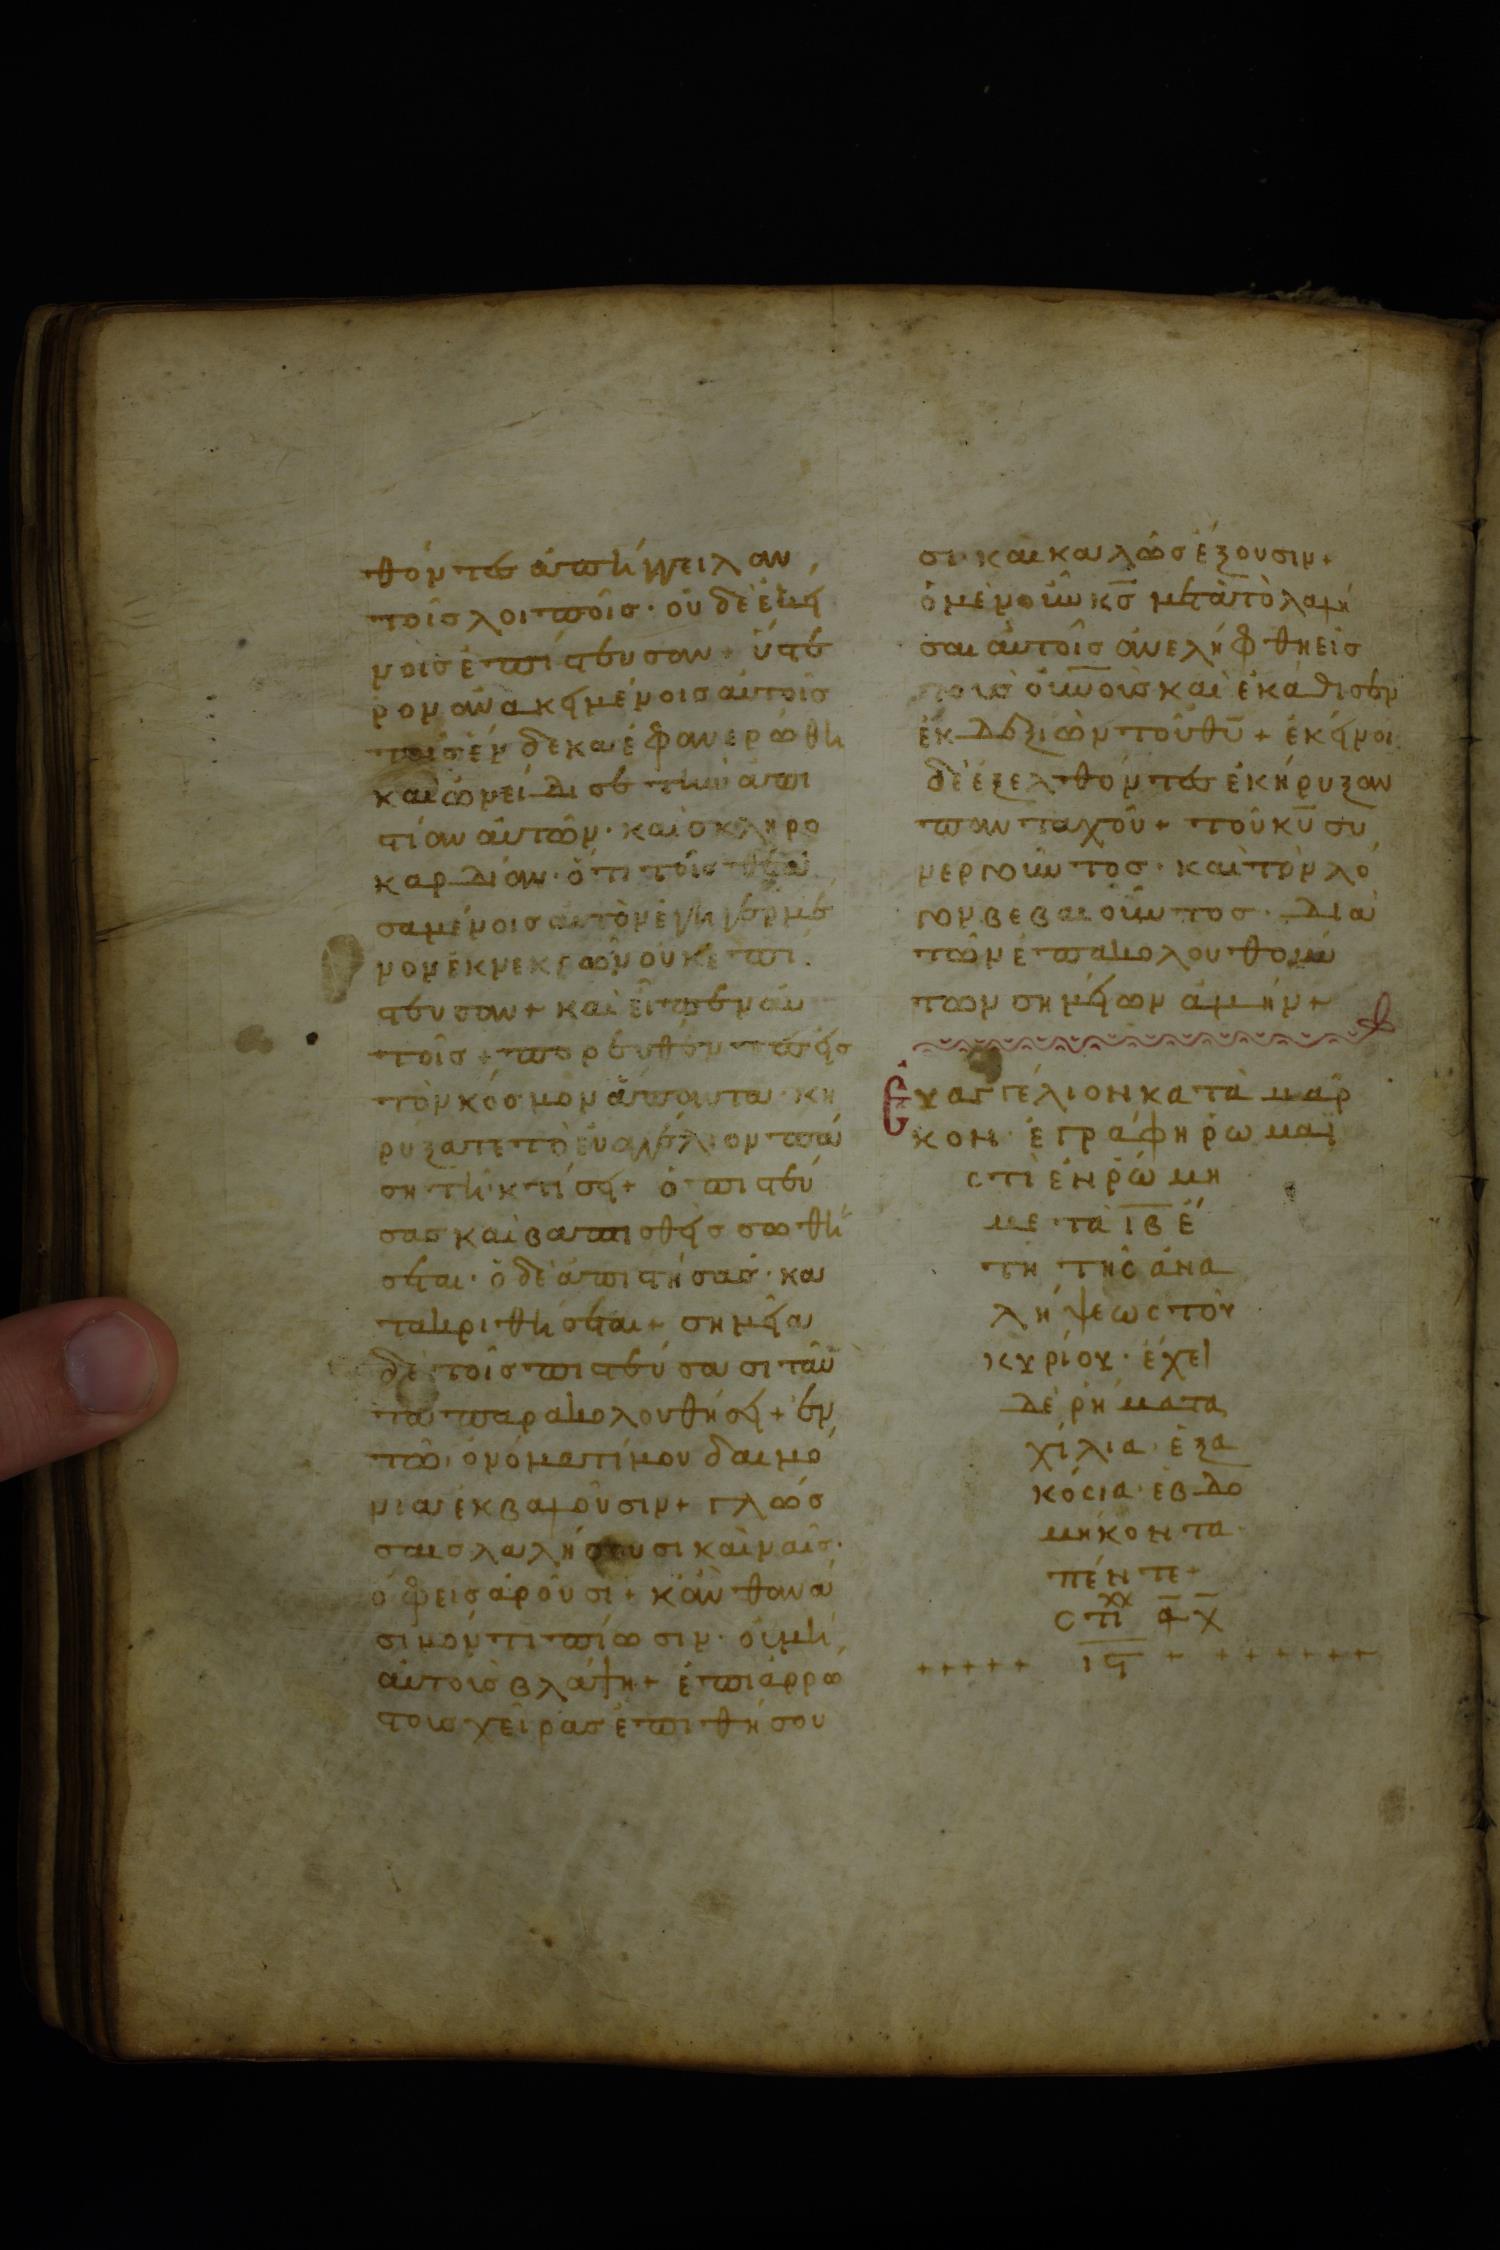 θόντες ἀπήγγειλαν
τοῖς λοιποῖς· οὐδὲ ἐκεί
νοις ἐπίστευσαν + ὕστε
ρον ἀνακειμένοις αὐτοῖς
τοῖς ἕνδεκα ἐφανερώθη
καὶ ὠνείδισε τὴν ἀπι
στίαν αὐτῶν· καὶ σκληρο
καρδίαν· ὅτι τοῖς θεα
σαμένοις αὐτὸν ἐγηγερμέ
νον ἐκ νεκρῶν οὐκ ἐπί
στευσαν + καὶ εἶπεν αὐ
τοῖς + πορευθέντες εἰς
τὸν κόσμον ἅπαντα· κη
ρύξατε τὸ εὐαγγέλιον πά
ση τῆ κτίσει + ὁ πιστεύ
σας καὶ βαπτισθεὶς σωθή
σεται· ὁ δὲ ἀπιστήσας· κα
τακριθήσεται + σημεῖα
δὲ τοῖς πιστεύσασι ταῦ
τα παρακολουθήσει + ἐν
τῶ ὀνόματί μου δαιμό
νια ἐκβαλοῦσιν + γλώσ
σαις λαλήσουσι καιναῖς·
ὄφεις ἀροῦσι + κἂν θανά
σιμόν τι πίωσιν· οὐ μὴ
αὐτοὺς βλάψη + ἐπὶ ἀρρώ
στους χεῖρας ἐπιθήσου
σι· καὶ καλῶς ἕξουσιν +
ὁ μὲν οὖν κ̅ς̅ μετὰ τὸ λαλῆ
σαι αὐτοῖς ἀνελήφθη εἰς
τοὺς οὐ̅νοὺς καὶ ἐκάθισεν
ἐκ δεξιῶν τοῦ θ̅υ̅ + ἐκεῖνοι
δὲ ἐξελθόντες ἐκήρυξαν
πανταχοῦ + τοῦ κ̅υ̅ συ
νεργοῦντος· καὶ τὸν λό
γον βεβαιοῦντος· διὰ
τῶν ἐπακολουθούν
των σημείων ἀμήν +
Εὐαγγέλιον κατὰ Μάρ
κον· ἐγράφη ῥωμαϊ
στὶ ἐν ῥώμη
μετὰ ι̅β̅ ἔ
τη τῆς ἀνα
λήψεως τοῦ
κυρίου· ἔχει
δὲ ῥήματα
χίλια· ἑξα
κόσια· ἑβδο
μήκοντα
πέντε +